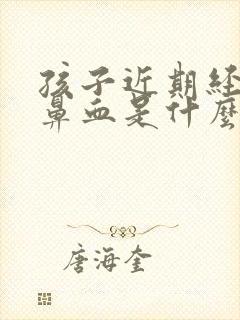 孩子近期经
鼻血是什麼
唐海奎